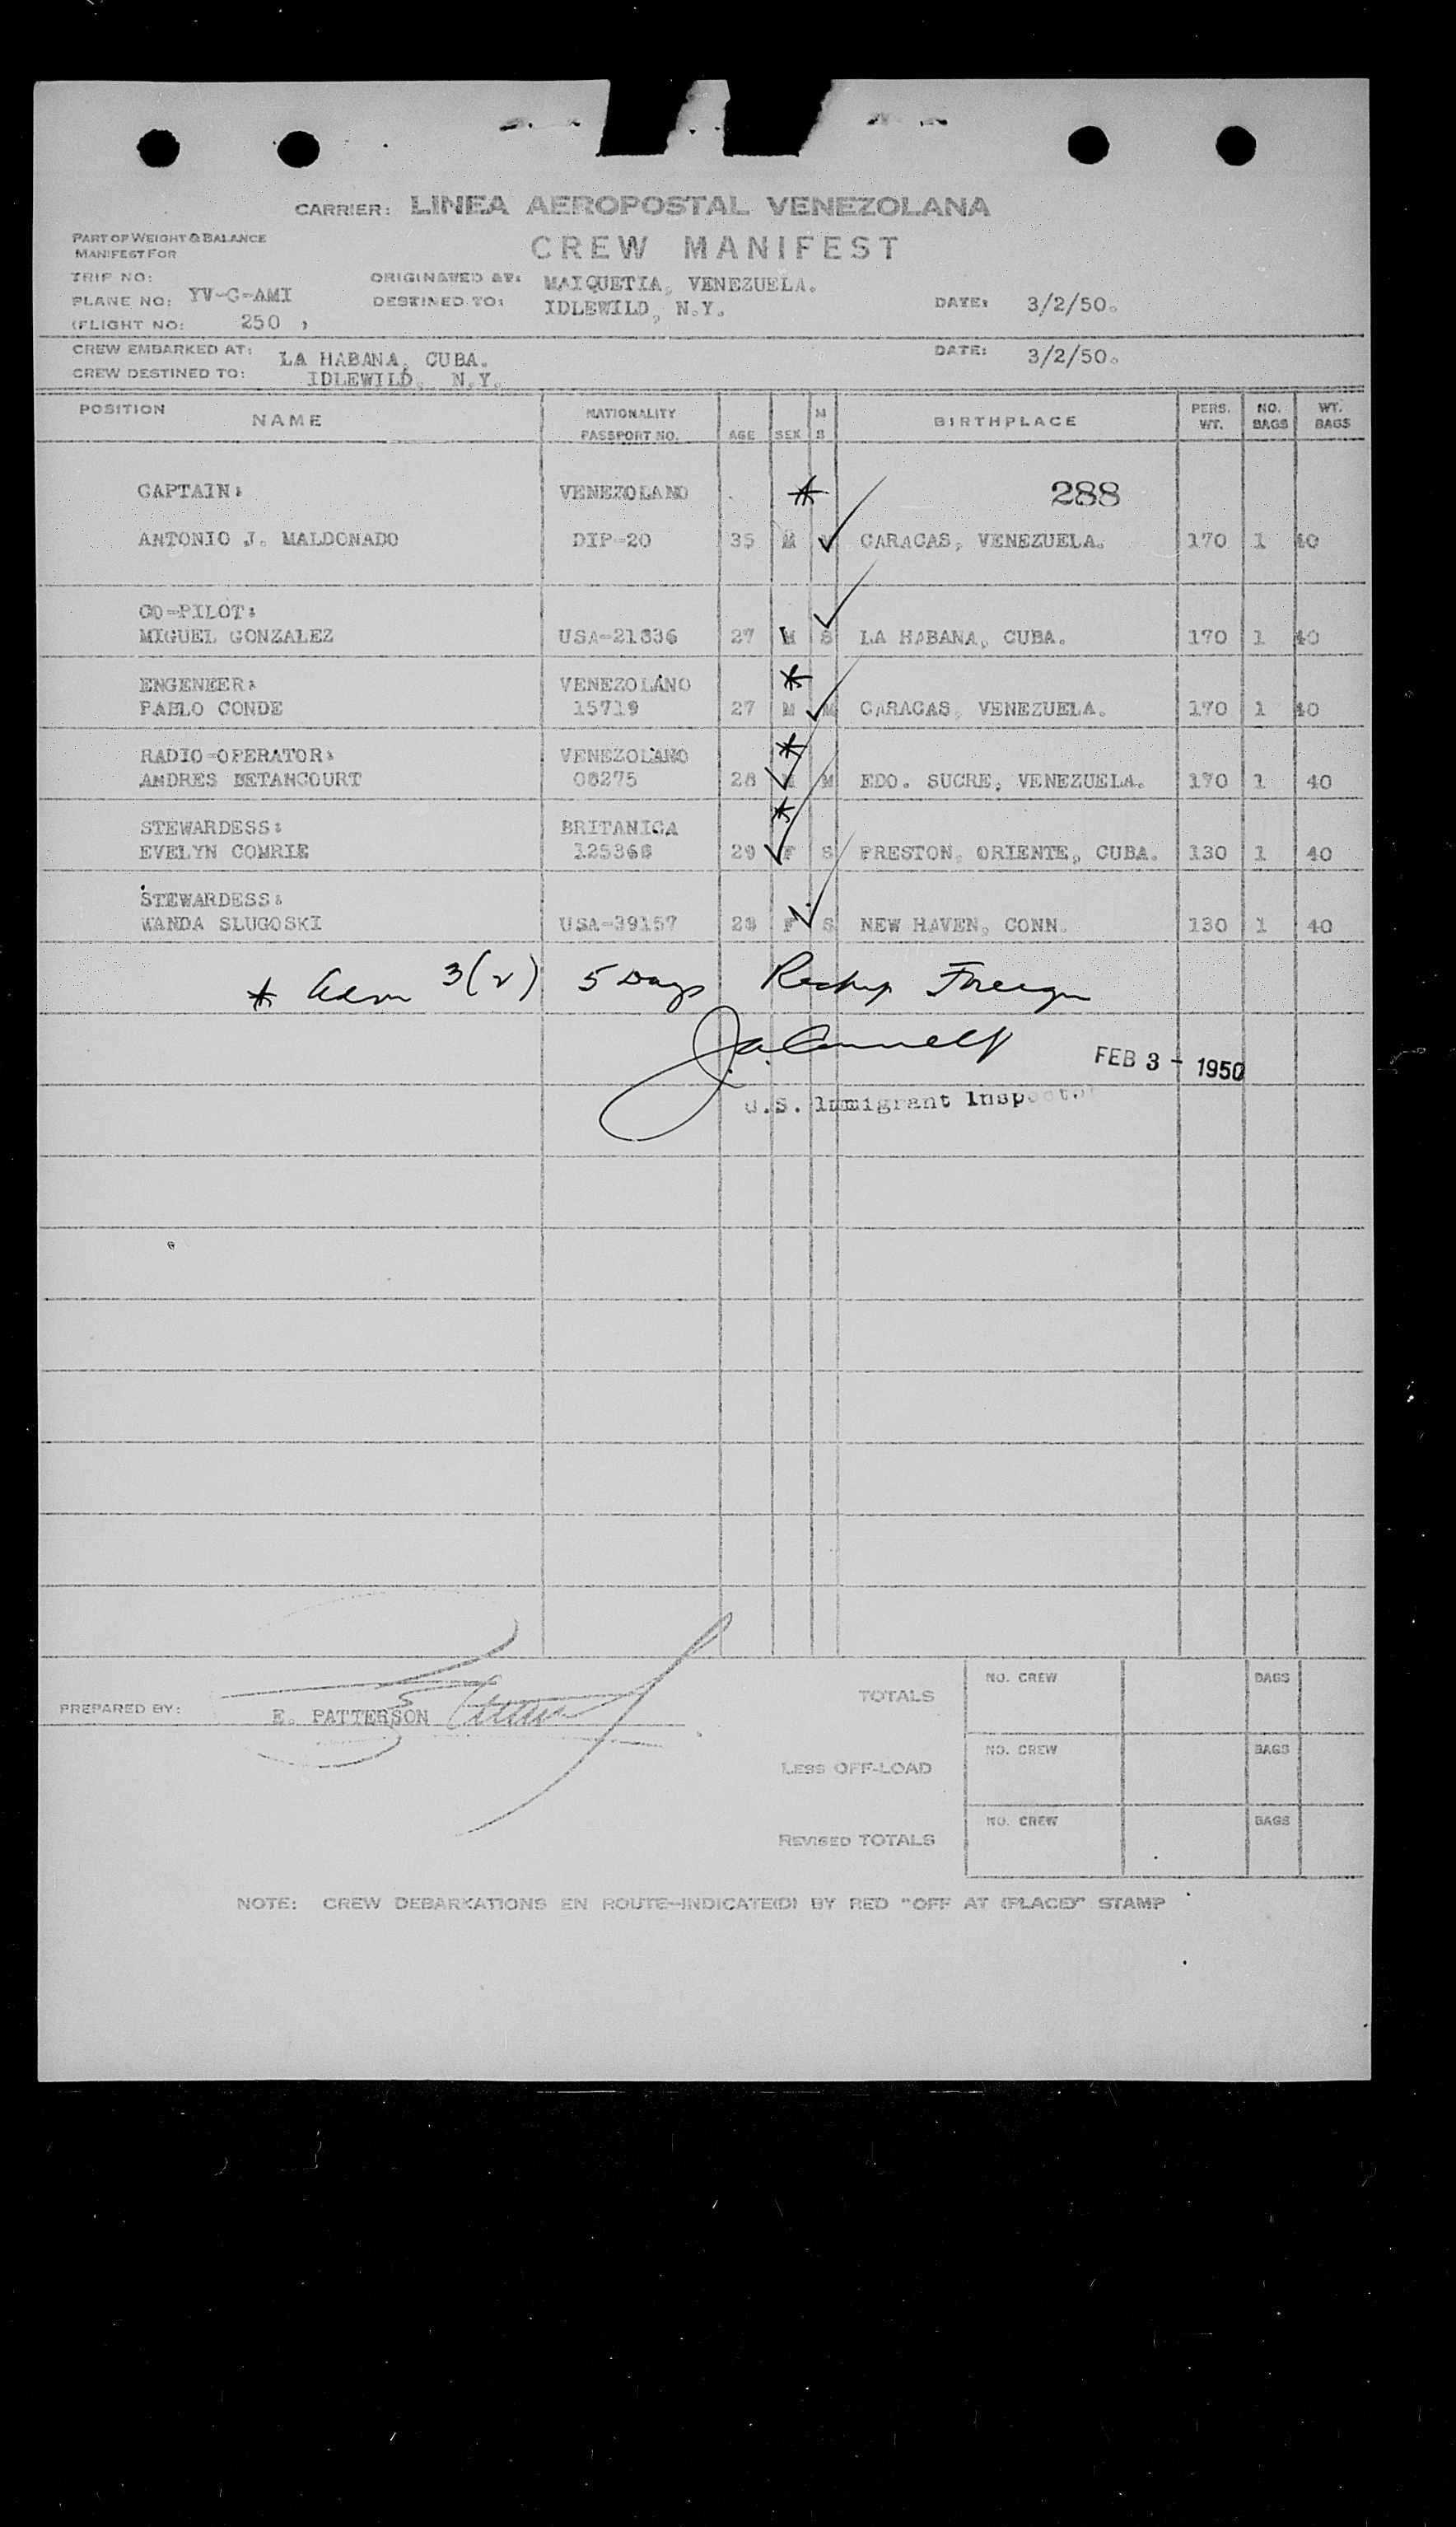 CARRIER: LINEA AEROPOSTAL VENEZOLANA
PART OF WEIGHT & BALANCE
MANIFEST FOR
CREW MANIFEST
TRIP NO:
ORIGINATED AT: MAIQUETIA, VENEZUELA.
PLANE NO: YV-C-AMI
DESTINED TO: IDLEWILD, N.Y.
DATE: 3/2/50.
(FLIGHT NO: 250 )
CREW EMBARKED AT: LA HABANA, CUBA.
DATE: 3/2/50.
CREW DESTINED TO: IDLEWILD, N.Y.
POSITION NAME NATIONALITY PASSPORT NO. AGE SEX M S BIRTHPLACE PERS. WT. NO. BAGS WT. BAGS
CAPTAIN: VENEZOLANO * 288
ANTONIO J. MALDONADO DIP-20 35 M CARACAS, VENEZUELA. 170 1 40
CO-PILOT:
MIGUEL GONZALEZ USA-21836 27 M S LA HABANA, CUBA. 170 1 40
ENGENEER: VENEZOLANO *
PABLO CONDE 15719 27 M M CARACAS, VENEZUELA. 170 1 40
RADIO-OPERATOR: VENEZOLANO *
ANDRES BETANCOURT 08275 28 M M EDO. SUCRE, VENEZUELA. 170 1 40
STEWARDESS: BRITANICA *
EVELYN COMRIE 125368 29 F S PRESTON, ORIENTE, CUBA. 130 1 40
STEWARDESS:
WANDA SLUGOSKI USA-39157 28 F S NEW HAVEN, CONN. 130 1 40
* Adm 3(2) 5 Days Reship Foreign
FEB 3 - 1950
U.S. Immigrant Inspector
PREPARED BY: E. PATTERSON
TOTALS NO. CREW BAGS
LESS OFF-LOAD NO. CREW BAGS
REVISED TOTALS NO. CREW BAGS
NOTE: CREW DEBARKATIONS EN ROUTE-INDICATE(D) BY RED "OFF AT (PLACE)" STAMP